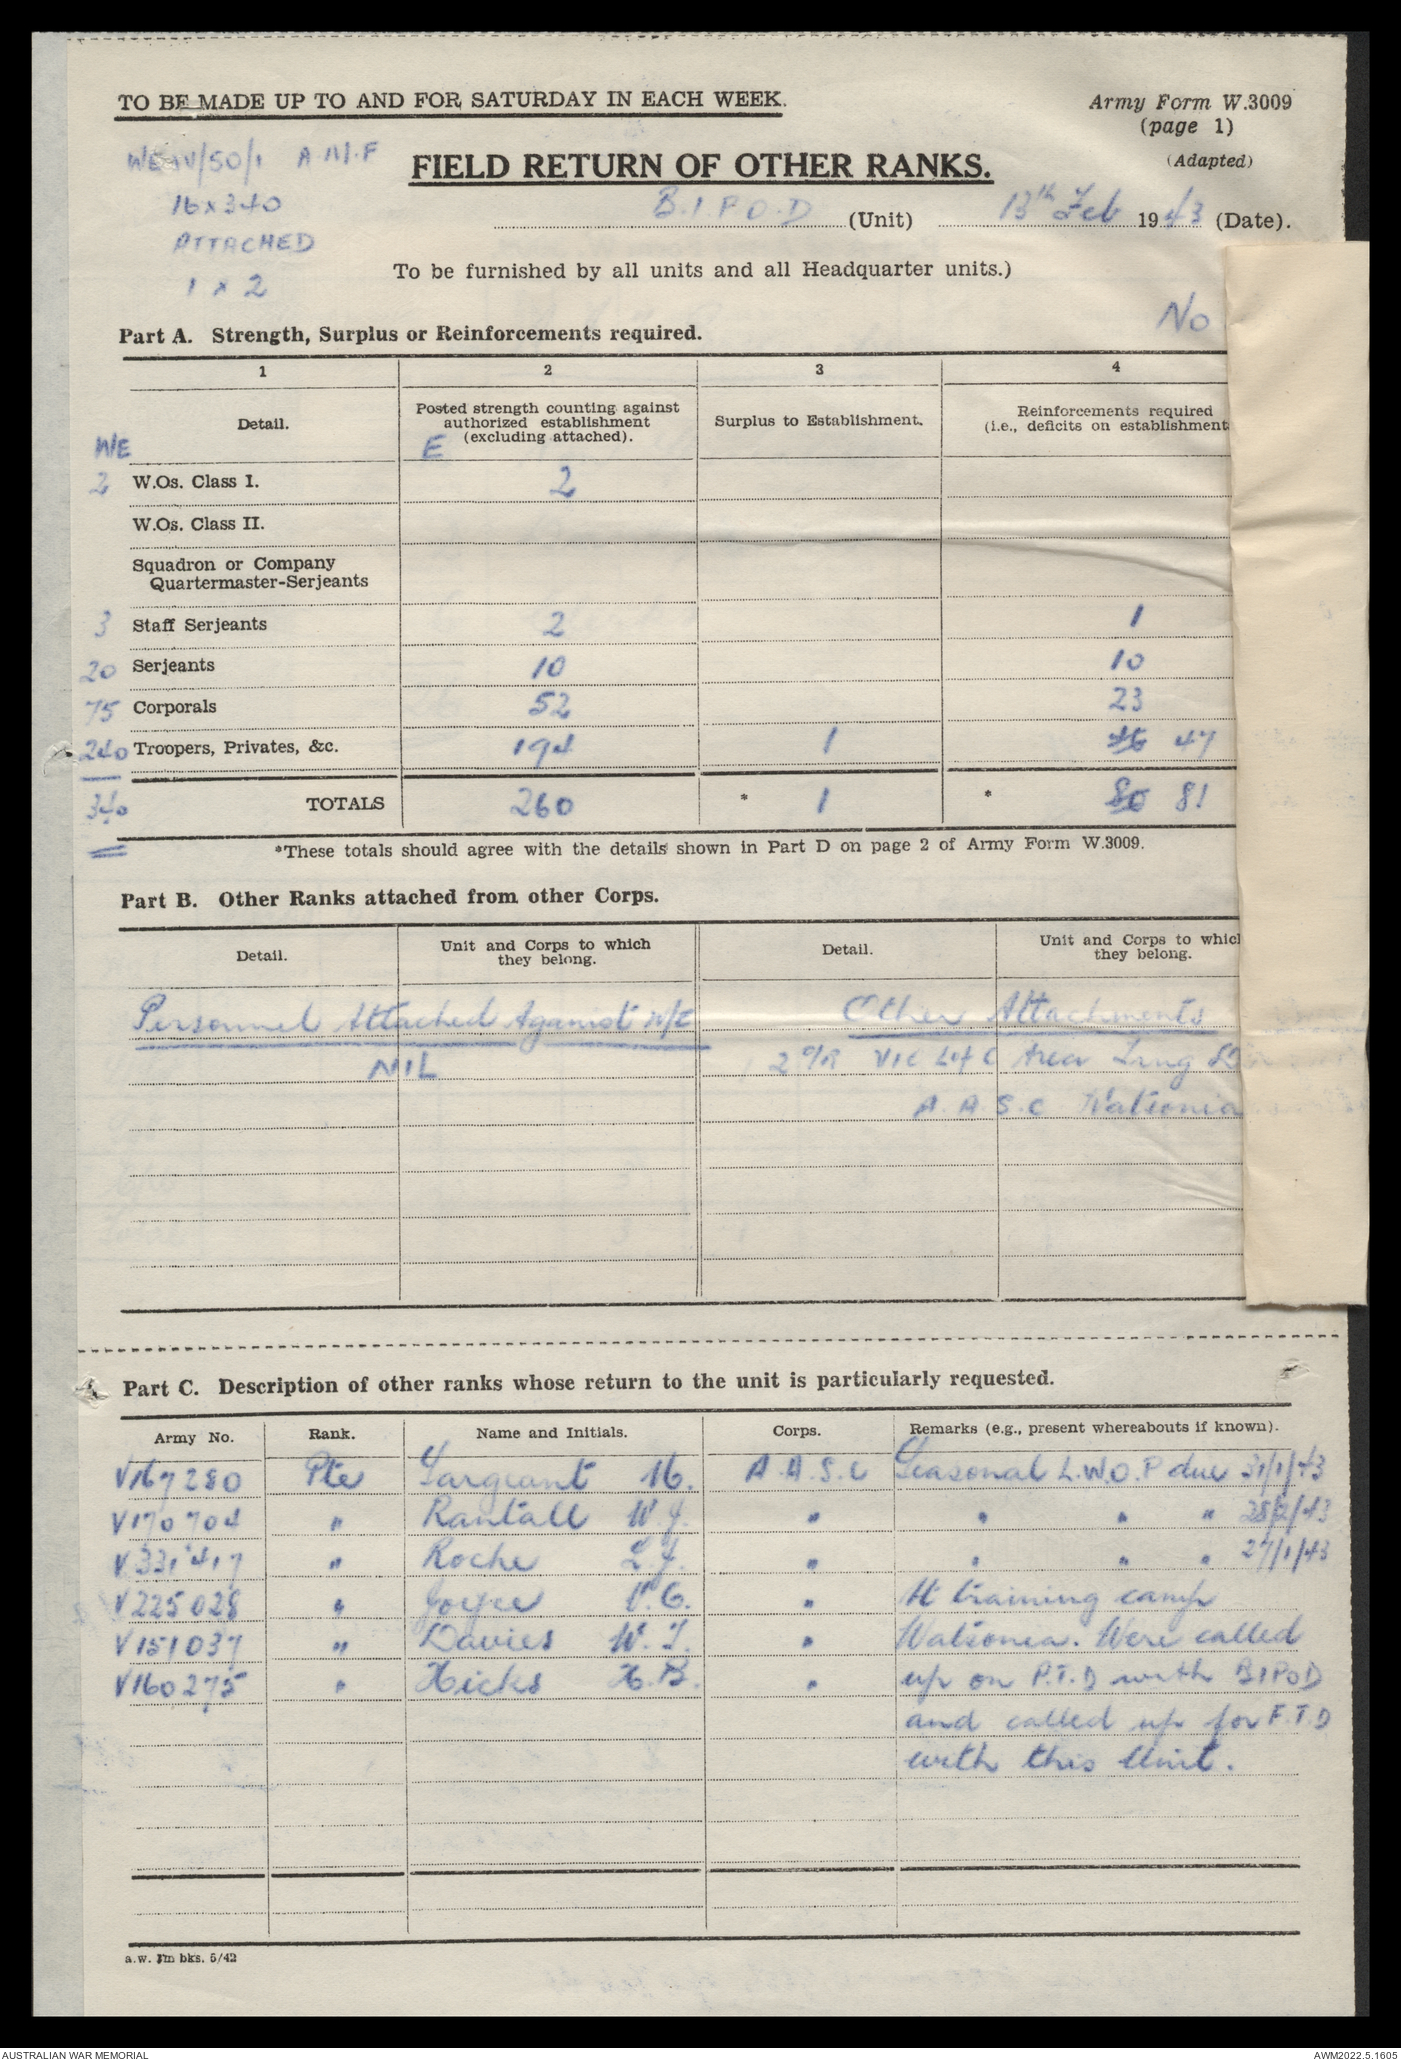 TO BE MADE UP TO AND FOR SATURDAY IN EACH WEEK.
Army Form W.3009
(page 1)
(Adapted)
A.M.F
FIELD RETURN OF OTHER RANKS.
16 x 340
B.I.P.O.D (Unit) 13th Feb 1943 (Date).
ATTACHED
1 x 2
To be furnished by all units and all Headquarter units.)
No
Part A. Strength, Surplus or Reinforcements required.
1 2 3 4
Detail. Posted strength counting against authorized establishment (excluding attached). Surplus to Establishment. Reinforcements required (i.e., deficits on establishment
W/E E
2 W.Os. Class I. 2
W.Os. Class II.
Squadron or Company
Quartermaster-Serjeants
3 Staff Serjeants 2 1
20 Serjeants 10 10
75 Corporals 52 23
240 Troopers, Privates, &c. 194 1 46 47
340 TOTALS 260 * 1 * 80 81
*These totals should agree with the details shown in Part D on page 2 of Army Form W.3009.
Part B. Other Ranks attached from other Corps.
Detail. Unit and Corps to which they belong. Detail. Unit and Corps to which they belong.
Personnel Attached Against W/E Other Attachments
NIL 2 O/R VIC L of C Area
A.A.S.C Watsonia
Part C. Description of other ranks whose return to the unit is particularly requested.
Army No. Rank. Name and Initials. Corps. Remarks (e.g., present whereabouts if known).
V167280 Pte Sargeant H. A.A.S.C Seasonal L.W.O.P due 31/1/43
V170704 " Rantall W.J. " " " " 28/2/43
V331417 " Roche L.J. " " " " 27/1/43
V225028 " Joyce V.C. " At training camp
V151037 " Davies W.T. " Watsonia. Were called
V160275 " Hicks H.B. " up on P.T.D with BIPOD
and called up for F.T.D
with this Unit.
a.w. 1m bks. 5/42
AUSTRALIAN WAR MEMORIAL
AWM2022.5.1605